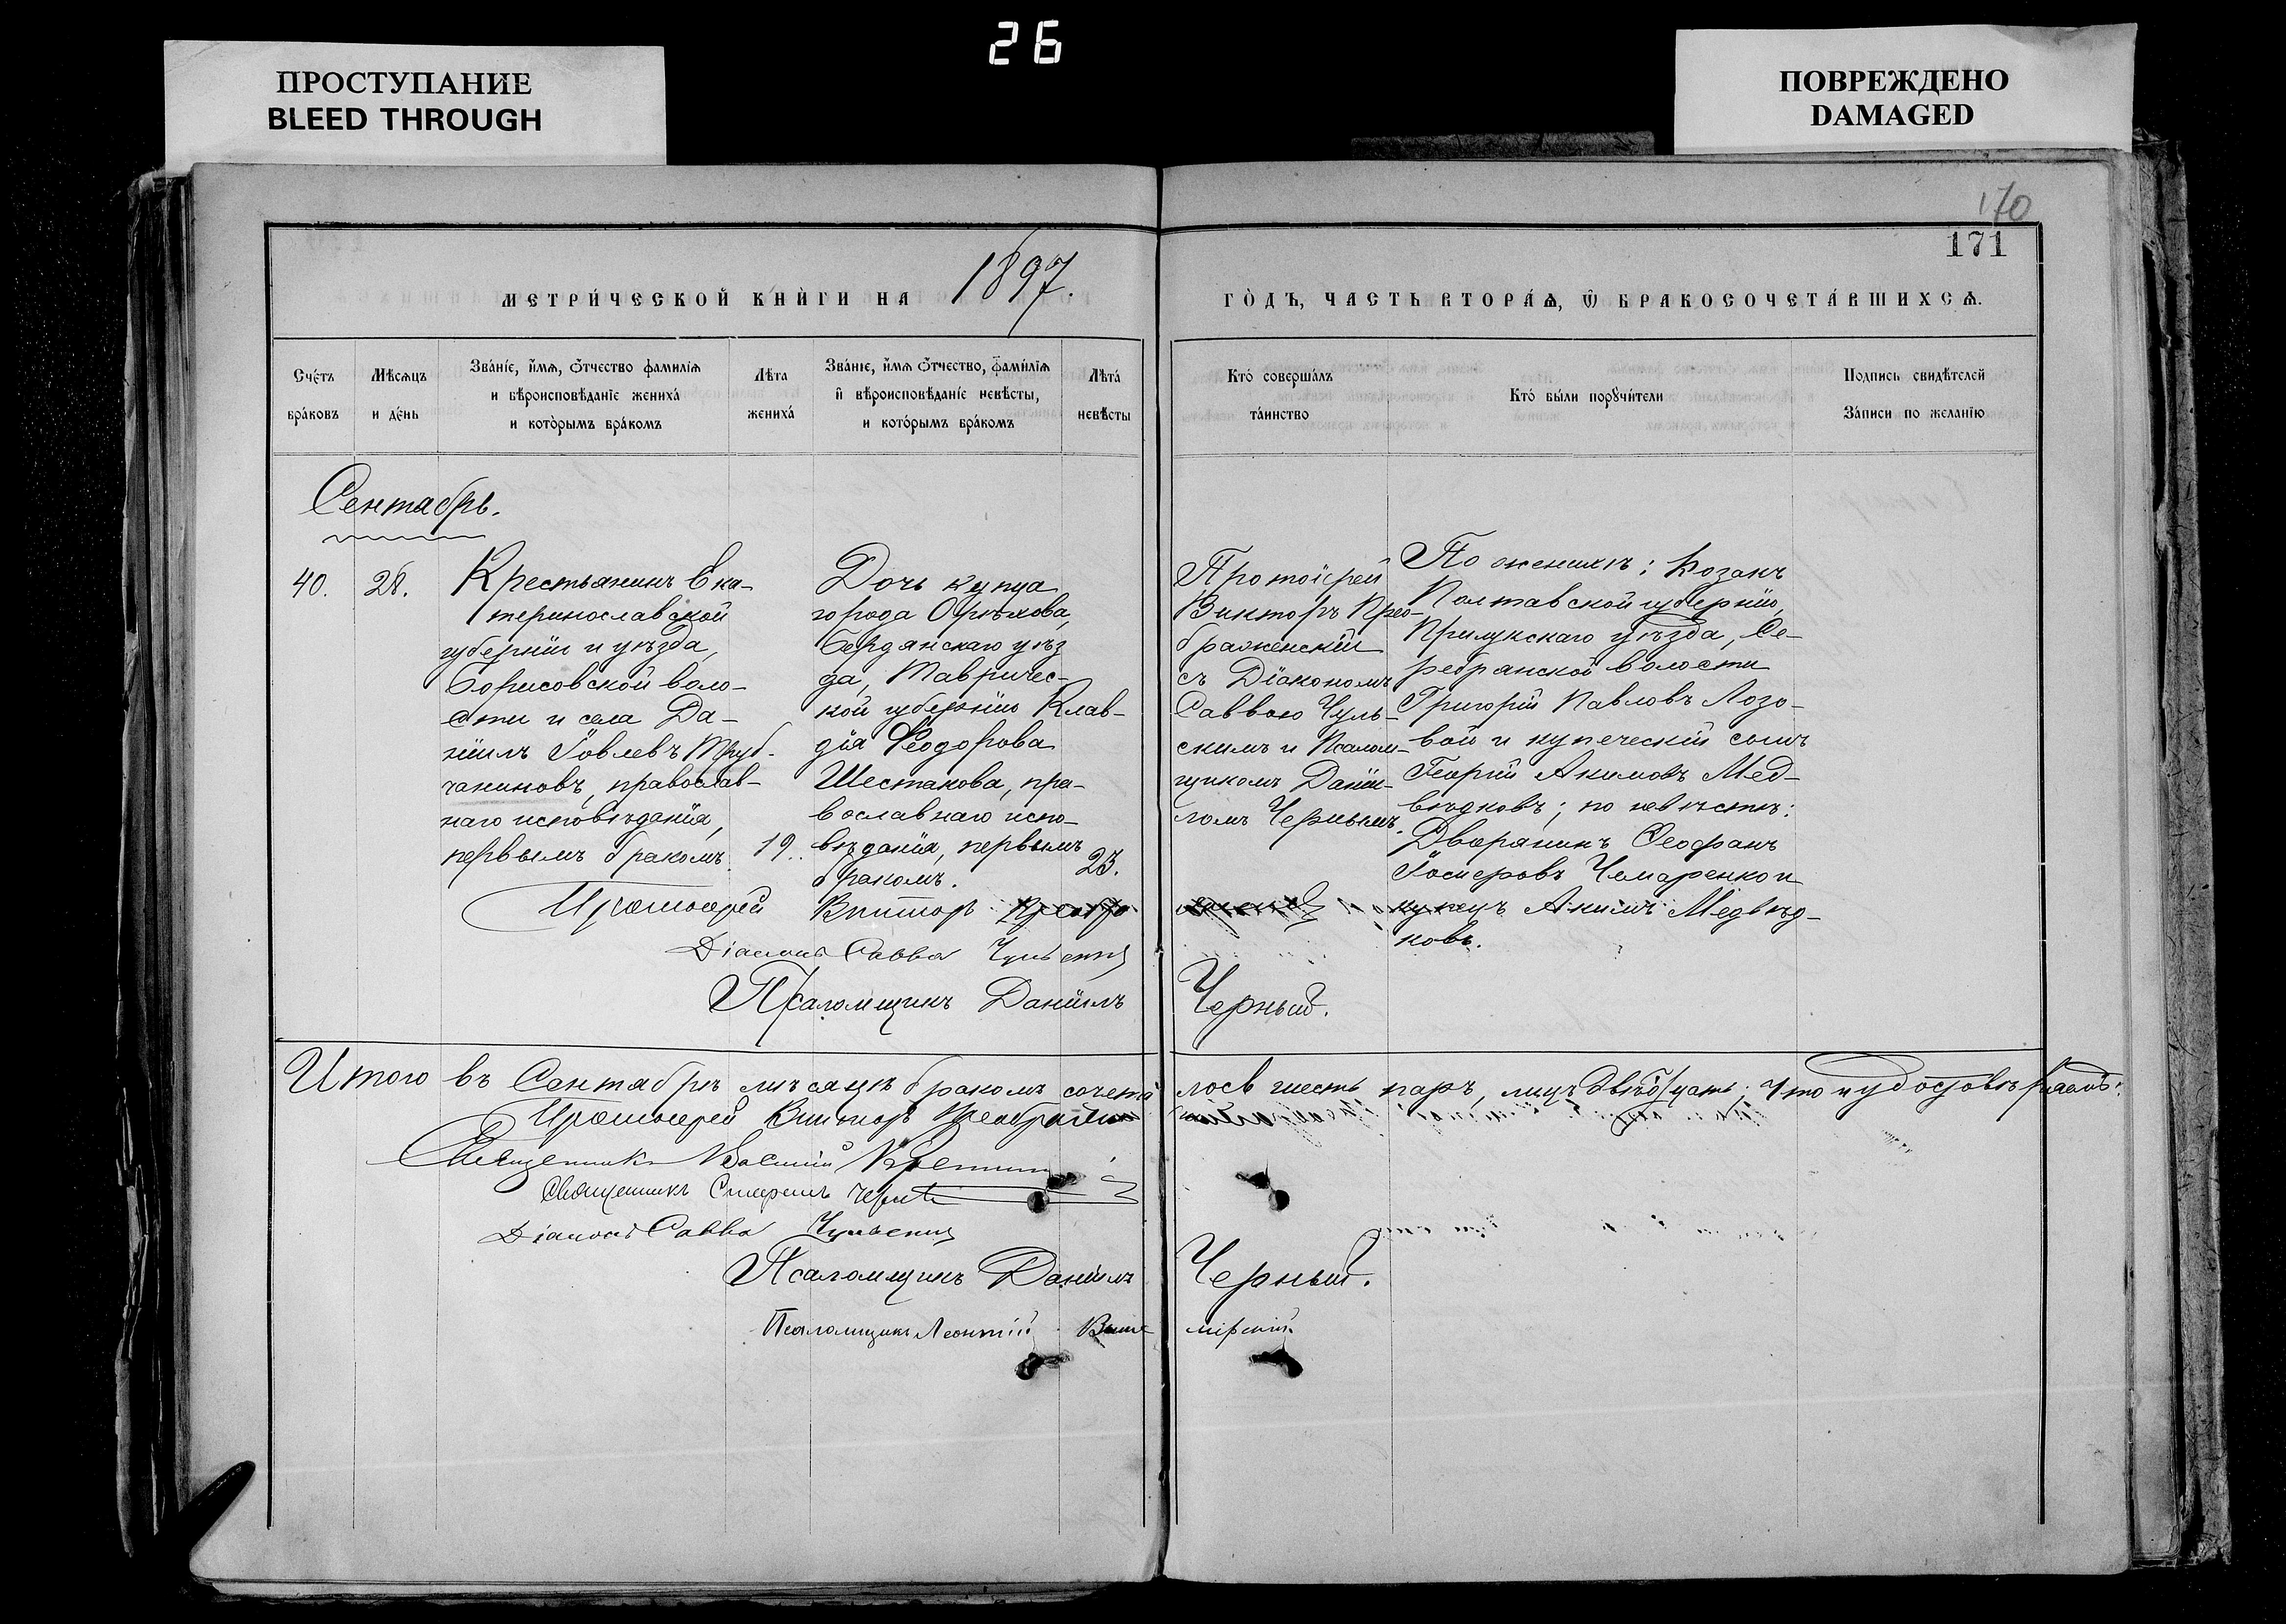 26
ПРОСТУПАНИЕ
BLEED THROUGH
ПОВРЕЖДЕНО
DAMAGED
170
171
МЕТРИ́ЧЕСКОЙ КНИ́ГИ НА 1897.
ГО́ДЪ, ЧАСТЬ ВТОРА́Ѧ, Ѿ БРАКОСОЧЕТА́ВШИХСѦ.
Сче́тъ
бра́ковъ
Мѣ́сѧцъ
и де́нь
Зва́нїе, и҆́мѧ, ѻ҆́тчество фамилїѧ
и вѣроисповѣ́данїе жениха́
и кото́рымъ бра́комъ
Лѣта
жениха́
Зва́нїе, и҆́мѧ ѻ҆́тчество, фами́лїѧ
и҆ вѣроисповѣ́данїе невѣ́сты,
и кото́рымъ бра́комъ
Лѣта́
невѣ́сты
Кто́ соверша́лъ
та́инство
Кто́ бы́ли порꙋчи́тели
Подпись свидѣ́телей
За́писи по жела́нїю
Сентябрь.
40.
28.
Крестьянинъ Ека-
теринославской
губернiи и уѣзда,
Борисовской воло-
сти и села Да-
нiилъ Iовлевъ Труб-
чаниновъ, православ-
наго исповѣданiя,
первымъ бракомъ.
19.
Дочь купца
города Орѣхова,
Бердянскаго уѣз
да, Тавричес-
кой губернiи Клав-
дiя Ѳеодорова
Шестакова, пра-
вославнаго испо-
вѣданiя, первымъ
бракомъ.
23.
Протоiерей
Викторъ Прео-
браженскiй
съ Дiакономъ
Саввою Чуль-
скимъ и Псалом-
щикомъ Данiи-
ломъ Чернымъ.
По женихѣ: Козакъ
Полтавской губернiи,
Прилукскаго уѣзда, Се-
ребрянской волости
Григорiй Павловъ Лозо-
вой и купеческiй сынъ
Георгiй Акимовъ Мед-
вѣдковъ; по невѣстѣ:
Дворянинъ Ѳеофанъ
Чемаренко и
купецъ Акимъ Медвѣд-
ковъ.
Протоiерей Викторъ
Дiаконъ Савва Чульскiй
Псаломщикъ Данiилъ Черный.
Итого въ Сентябрѣ мѣсяцѣ бракомъ сочета лось шесть паръ, лицъ Двѣнадцать; Что и удостовѣряемъ:
Протоiерей Викторъ Преображенскiй
Священникъ Василiй
Священникъ
Дiаконъ Савва Чульскiй
Псаломщикъ Данiилъ Черный.
Псаломщикъ Леонтiй